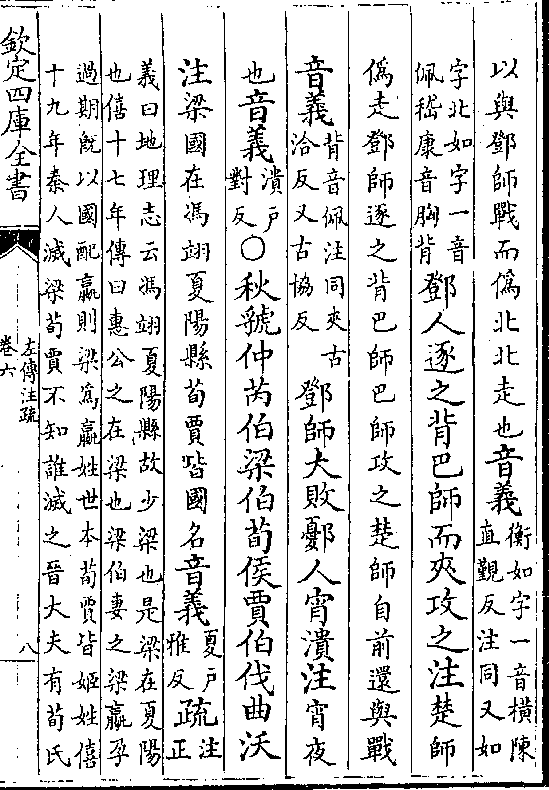 以與鄧師戰而偽北北走也音義衡如字一音橫陳直覲反注同又如
字北如字一音佩嵇康音胸背鄧人逐之背巴師而夾攻之注楚師
偽走鄧師逐之背巴師巴師攻之楚師自前還與戰
音義背音佩注同夾古洽反又古協反鄧師大敗鄾人宵潰注宵夜
也音義潰戶對反○秋虢仲芮伯梁伯荀侯賈伯伐曲沃
注梁國在馮翊夏陽縣荀賈皆國名音義夏戶雅反疏注正
義曰地理志云馮翊夏陽縣故少梁也是梁在夏陽
也僖十七年傳曰惠公之在梁也梁伯妻之梁嬴孕
過期既以國配嬴則梁為嬴姓世本荀賈皆姬姓僖
十九年秦人滅梁荀賈不知誰滅之晉大夫有荀氏
欽定四庫全書
左傳注疏
卷六
八